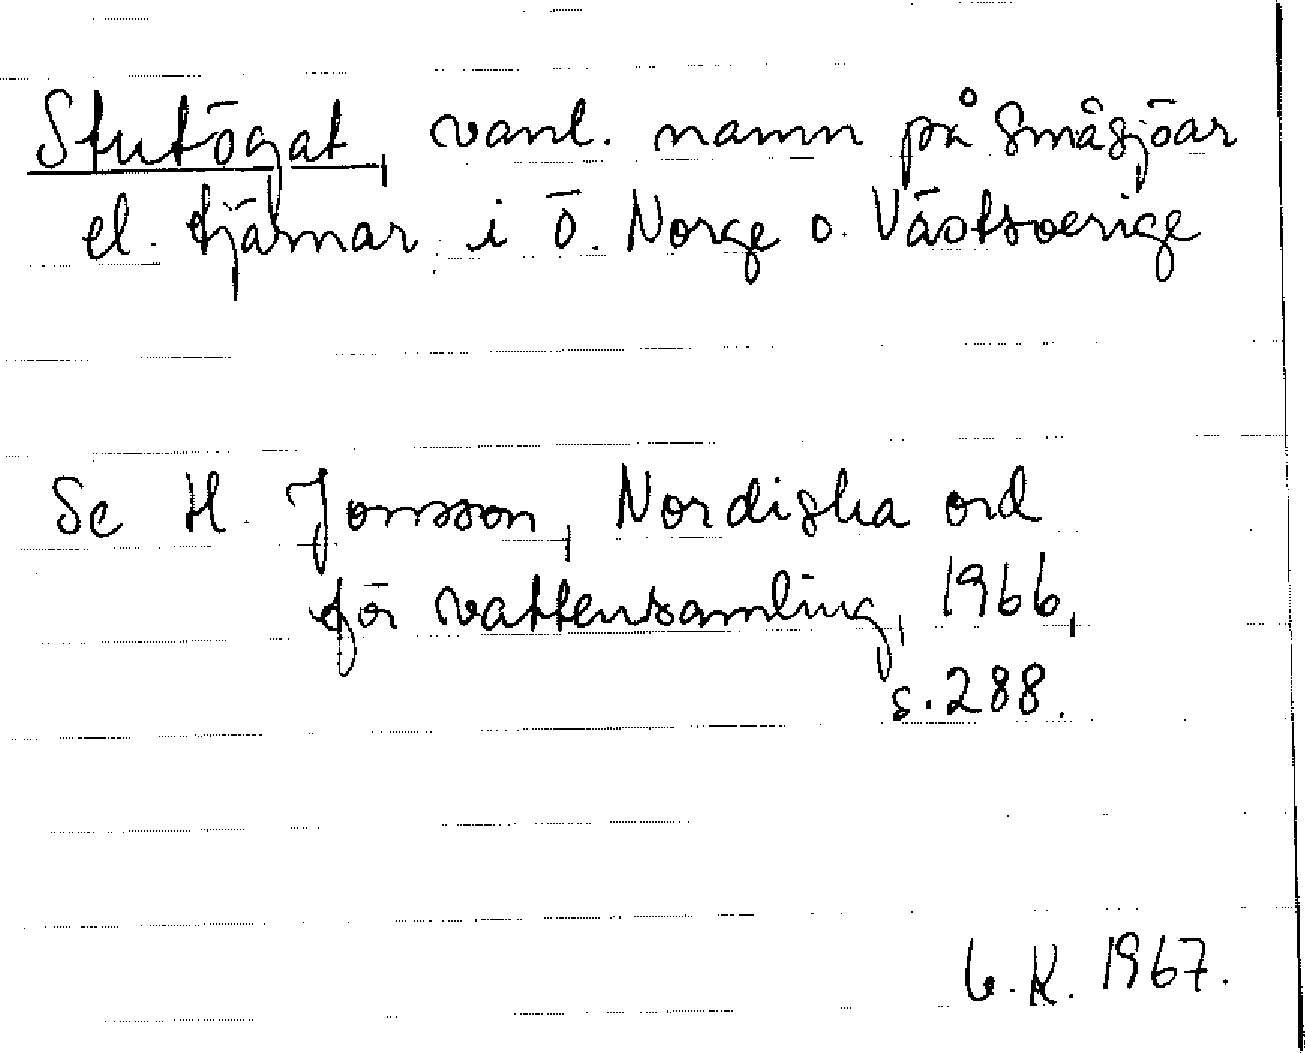 Stutögat, vanl. namn på småsjöar
el. tjärnar i ö. Norge o. Västsverige
Se H. Jonsson, Nordiska ord
för vattensamling, 1966,
s. 288.
G.K. 1967.